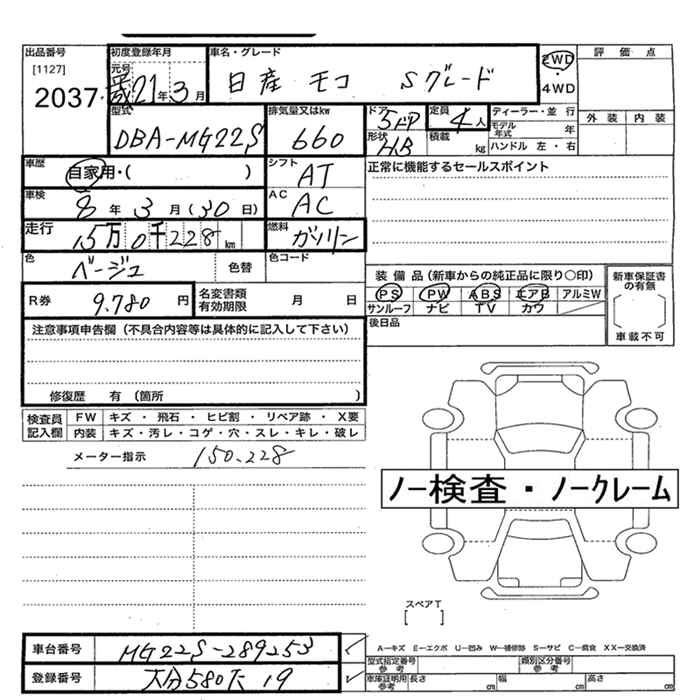 出品番号 初度登録年月 車名・グレード 評価点
[1127] 元号 2WD
2037 平成21年3月 日産 モコ Sグレード ・
4WD
型式 排気量又はkw ドア 定員 ディーラー・並行 外装 内装
DBA-MG22S 660 5ドア 4人 モデル年式 年
形状 積載 ハンドル 左・右
HB kg
車歴 シフト 正常に機能するセールスポイント
自家用・( ) AT
車検 AC
8年3月(30日) AC
走行 燃料
15万0千228km ガソリン
色 色コード
ベージュ 色替 装備品(新車からの純正品に限り○印) 新車保証書の有無
R券 9.780円 名変書類有効期限 月 日 PS PW ABS エアB アルミW
サンルーフ ナビ TV カワ
注意事項申告欄(不具合内容等は具体的に記入して下さい) 後日品 車載不可
修復歴 有(箇所 )
検査員記入欄 FW キズ・飛石・ヒビ割・リペア跡・X要
内装 キズ・汚レ・コゲ・穴・スレ・キレ・破レ
メーター指示 150.228
ノー検査・ノークレーム
スペアT
[ ]
車台番号 MG22S-289253 A―キズ E―エクボ U―凹み W―補修跡 S―サビ C―腐食 XX―交換済
型式指定番号 参考 類別区分番号 参考
登録番号 大分580 19 車庫証明用参考 長さ cm 幅 cm 高さ cm